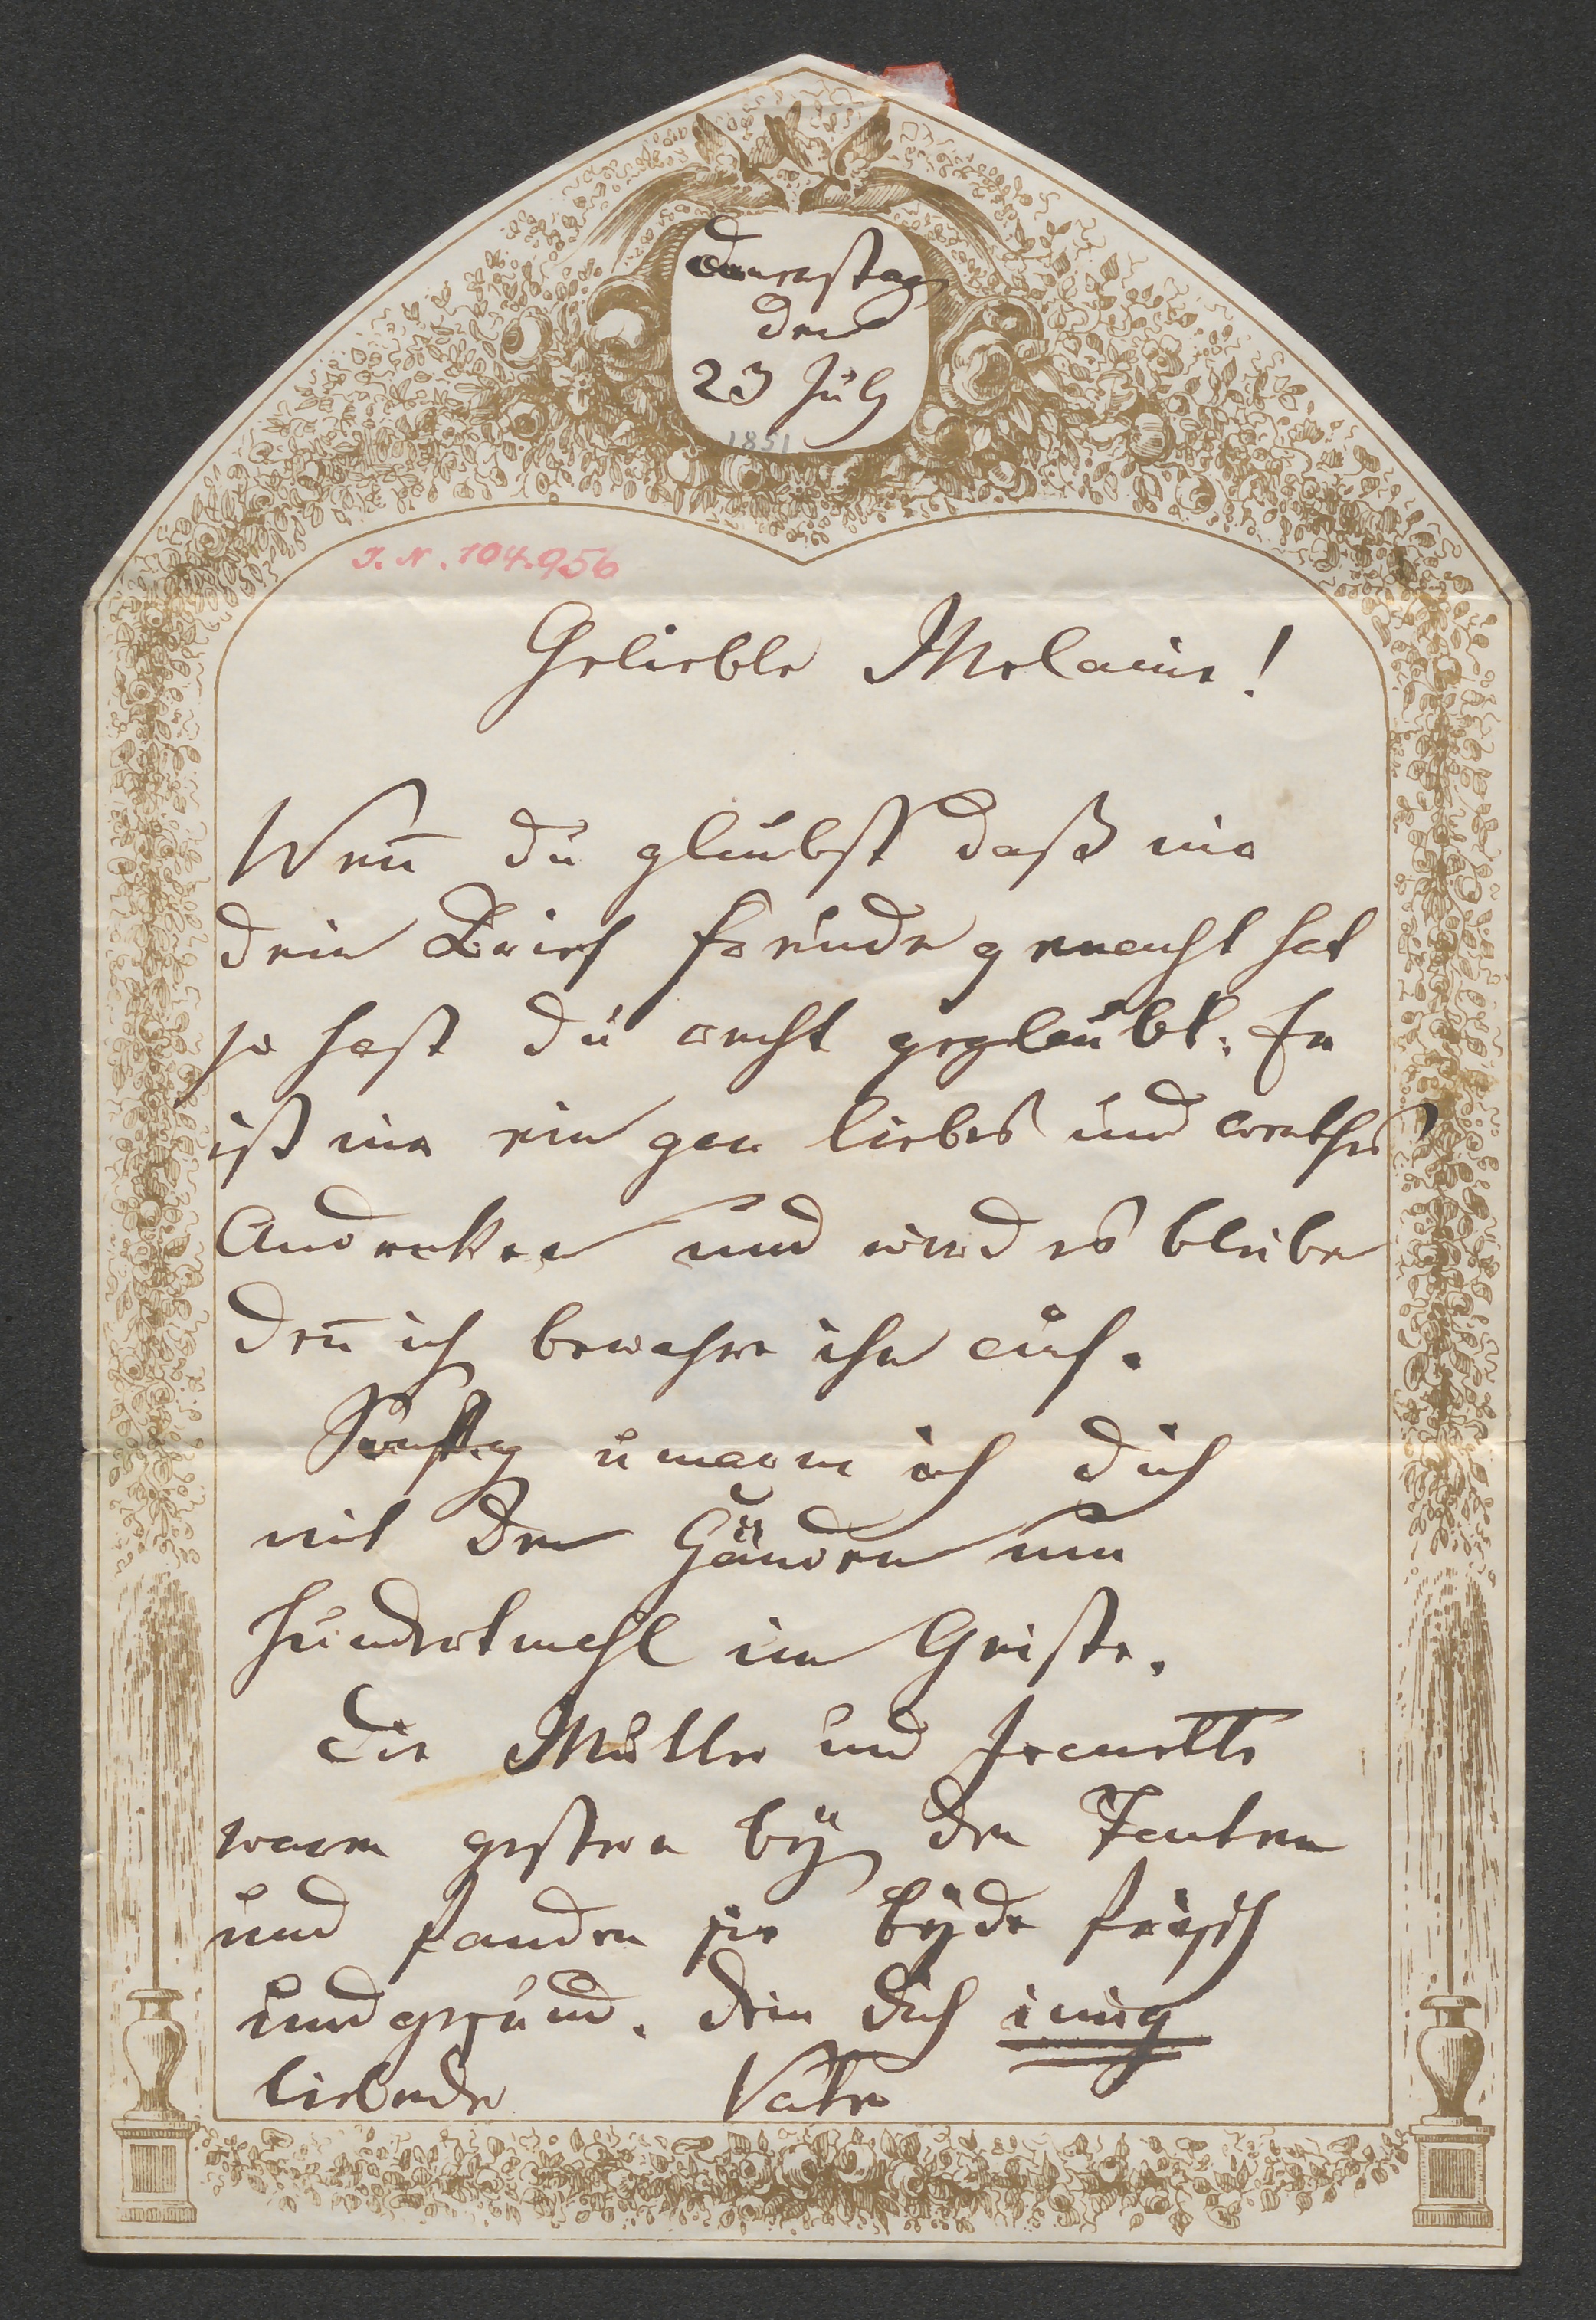 Donnerstag
den
23 July
1851
I.N. 104.956
Geliebte Melanie!
Wen̄ du glaubst daß mir
dein Brief freude gemacht hat
so hast du recht geglaubt. Er
ist mir ein gar liebes und werthes
Andenken und wird es bleiben
den̄ ich bewahre ihn auf.
umarme ich dich
mit den Händen nun
hundertmahl im Geiste.
Die Mutter und Jeanette
waren gestern bÿ den Tanten
und fanden sie bÿde frisch
und gesund. Dein dich innig
liebender Vater